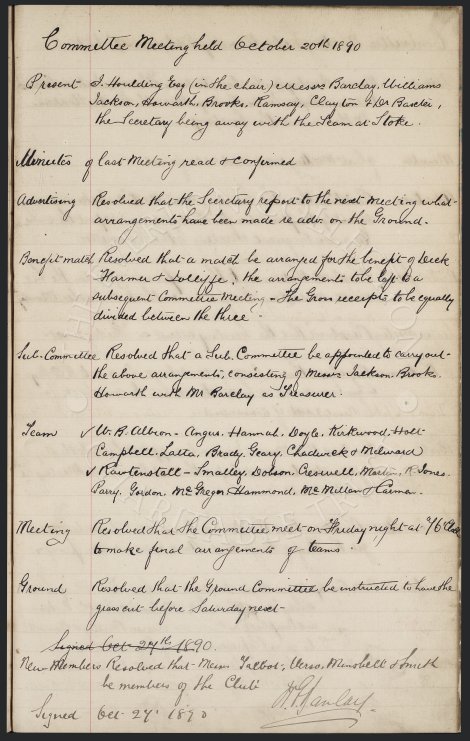 Committee Meeting held October 20th 1890
Present J. Houlding Esq (in the chair) Messrs Barclay, Williams
Jackson, Howarth, Brooks, Ramsay, Clayton & Dr Baxter,
the Secretary being away with the Team at Stoke.
Minutes of last Meeting read & confirmed
Advertising Resolved that the Secretary report to the next Meeting what
arrangements have been made re adv. on the Ground.
Benefit match Resolved that a match be arranged for the benefit of Dick
Farmer & Jolliffe, the arrangements to be left to a
subsequent Committee Meeting - The Gross receipts to be equally
divided between the three
Sub-Committee Resolved that a Sub. Committee be appointed to carry out
the above arrangements, consisting of Messrs Jackson, Brooks
Howarth with Mr Barclay as Treasurer.
Team ✓ W. B. Albion - Angus, Hannah, Doyle, Kirkwood, Holt
Campbell, Latta, Brady, Geary, Chadwick & Milward
✓ Rawtenstall - Smalley, Dobson, Creswell, Martin, R Jones
Parry, Gordon, McGregor, Hammond, McMillan & Carmen.
Meeting Resolved that the Committee meet on Friday night at
to make final arrangements of teams
Ground Resolved that the Ground Committee be instructed to have the
grass cut before Saturday next
Signed Oct 27th 1890.
New Members Resolved that Messrs Talbot, Verso, & Smith
be members of the Club
Signed Oct 27 1890